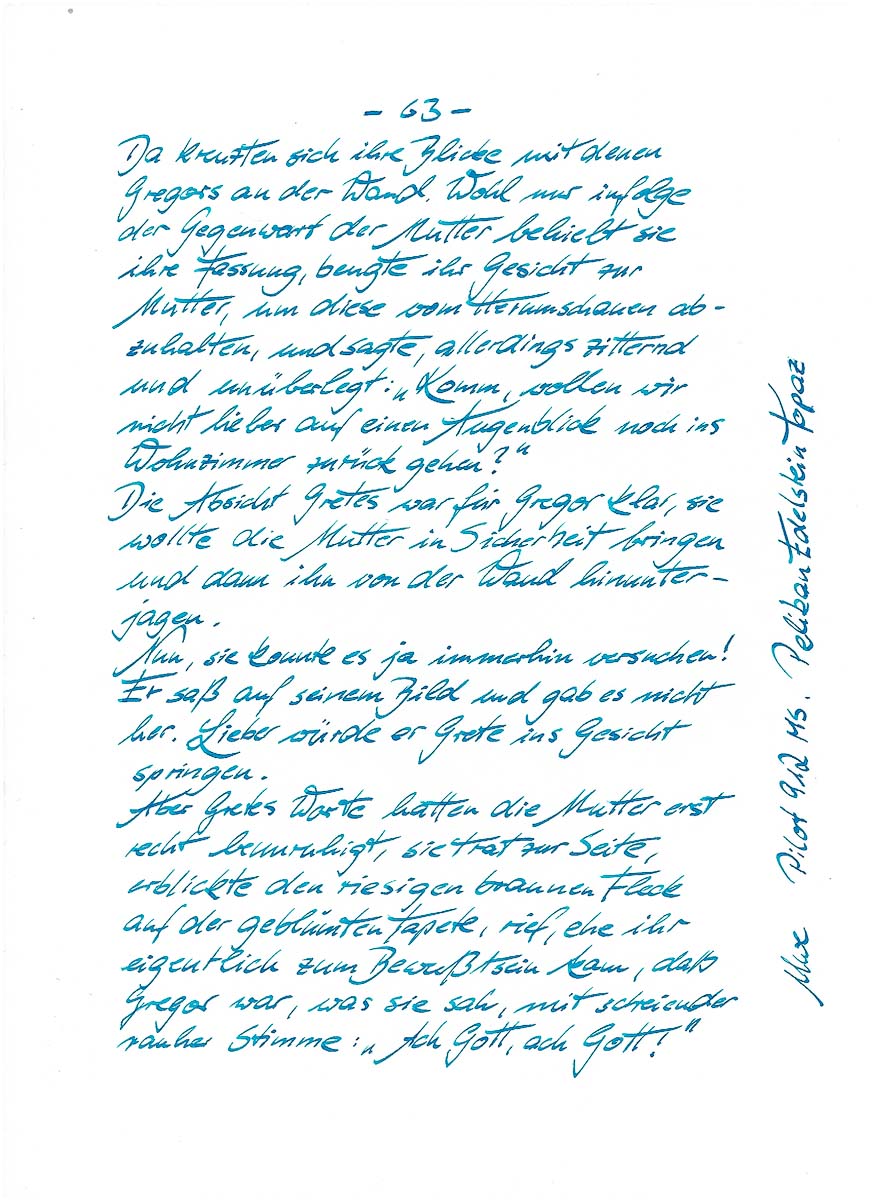 - 63 -
Da kreuzten sich ihre Blicke mit denen
Gregors an der Wand. Wohl nur infolge
der Gegenwart der Mutter behielt sie
ihre Fassung, beugte ihr Gesicht zur
Mutter, um diese vom Herumschauen ab-
zuhalten, und sagte, allerdings zitternd
und unüberlegt: „Komm, wollen wir
nicht lieber auf einen Augenblick noch ins
Wohnzimmer zurück gehen?"
Die Absicht Gretes war für Gregor klar, sie
wollte die Mutter in Sicherheit bringen
und dann ihn von der Wand hinunter-
jagen.
Nun, sie konnte es ja immerhin versuchen!
Er saß auf seinem Bild und gab es nicht
her. Lieber würde er Grete ins Gesicht
springen.
Aber Gretes Worte hatten die Mutter erst
recht beunruhigt, sie trat zur Seite,
erblickte den riesigen braunen Fleck
auf der geblümten Tapete, rief, ehe ihr
eigentlich zum Bewußtsein kam, daß
Gregor war, was sie sah, mit schreiender
rauher Stimme: „Ach Gott, ach Gott!"
Pilot 912 MS. Pelikan Edelstein Topaz